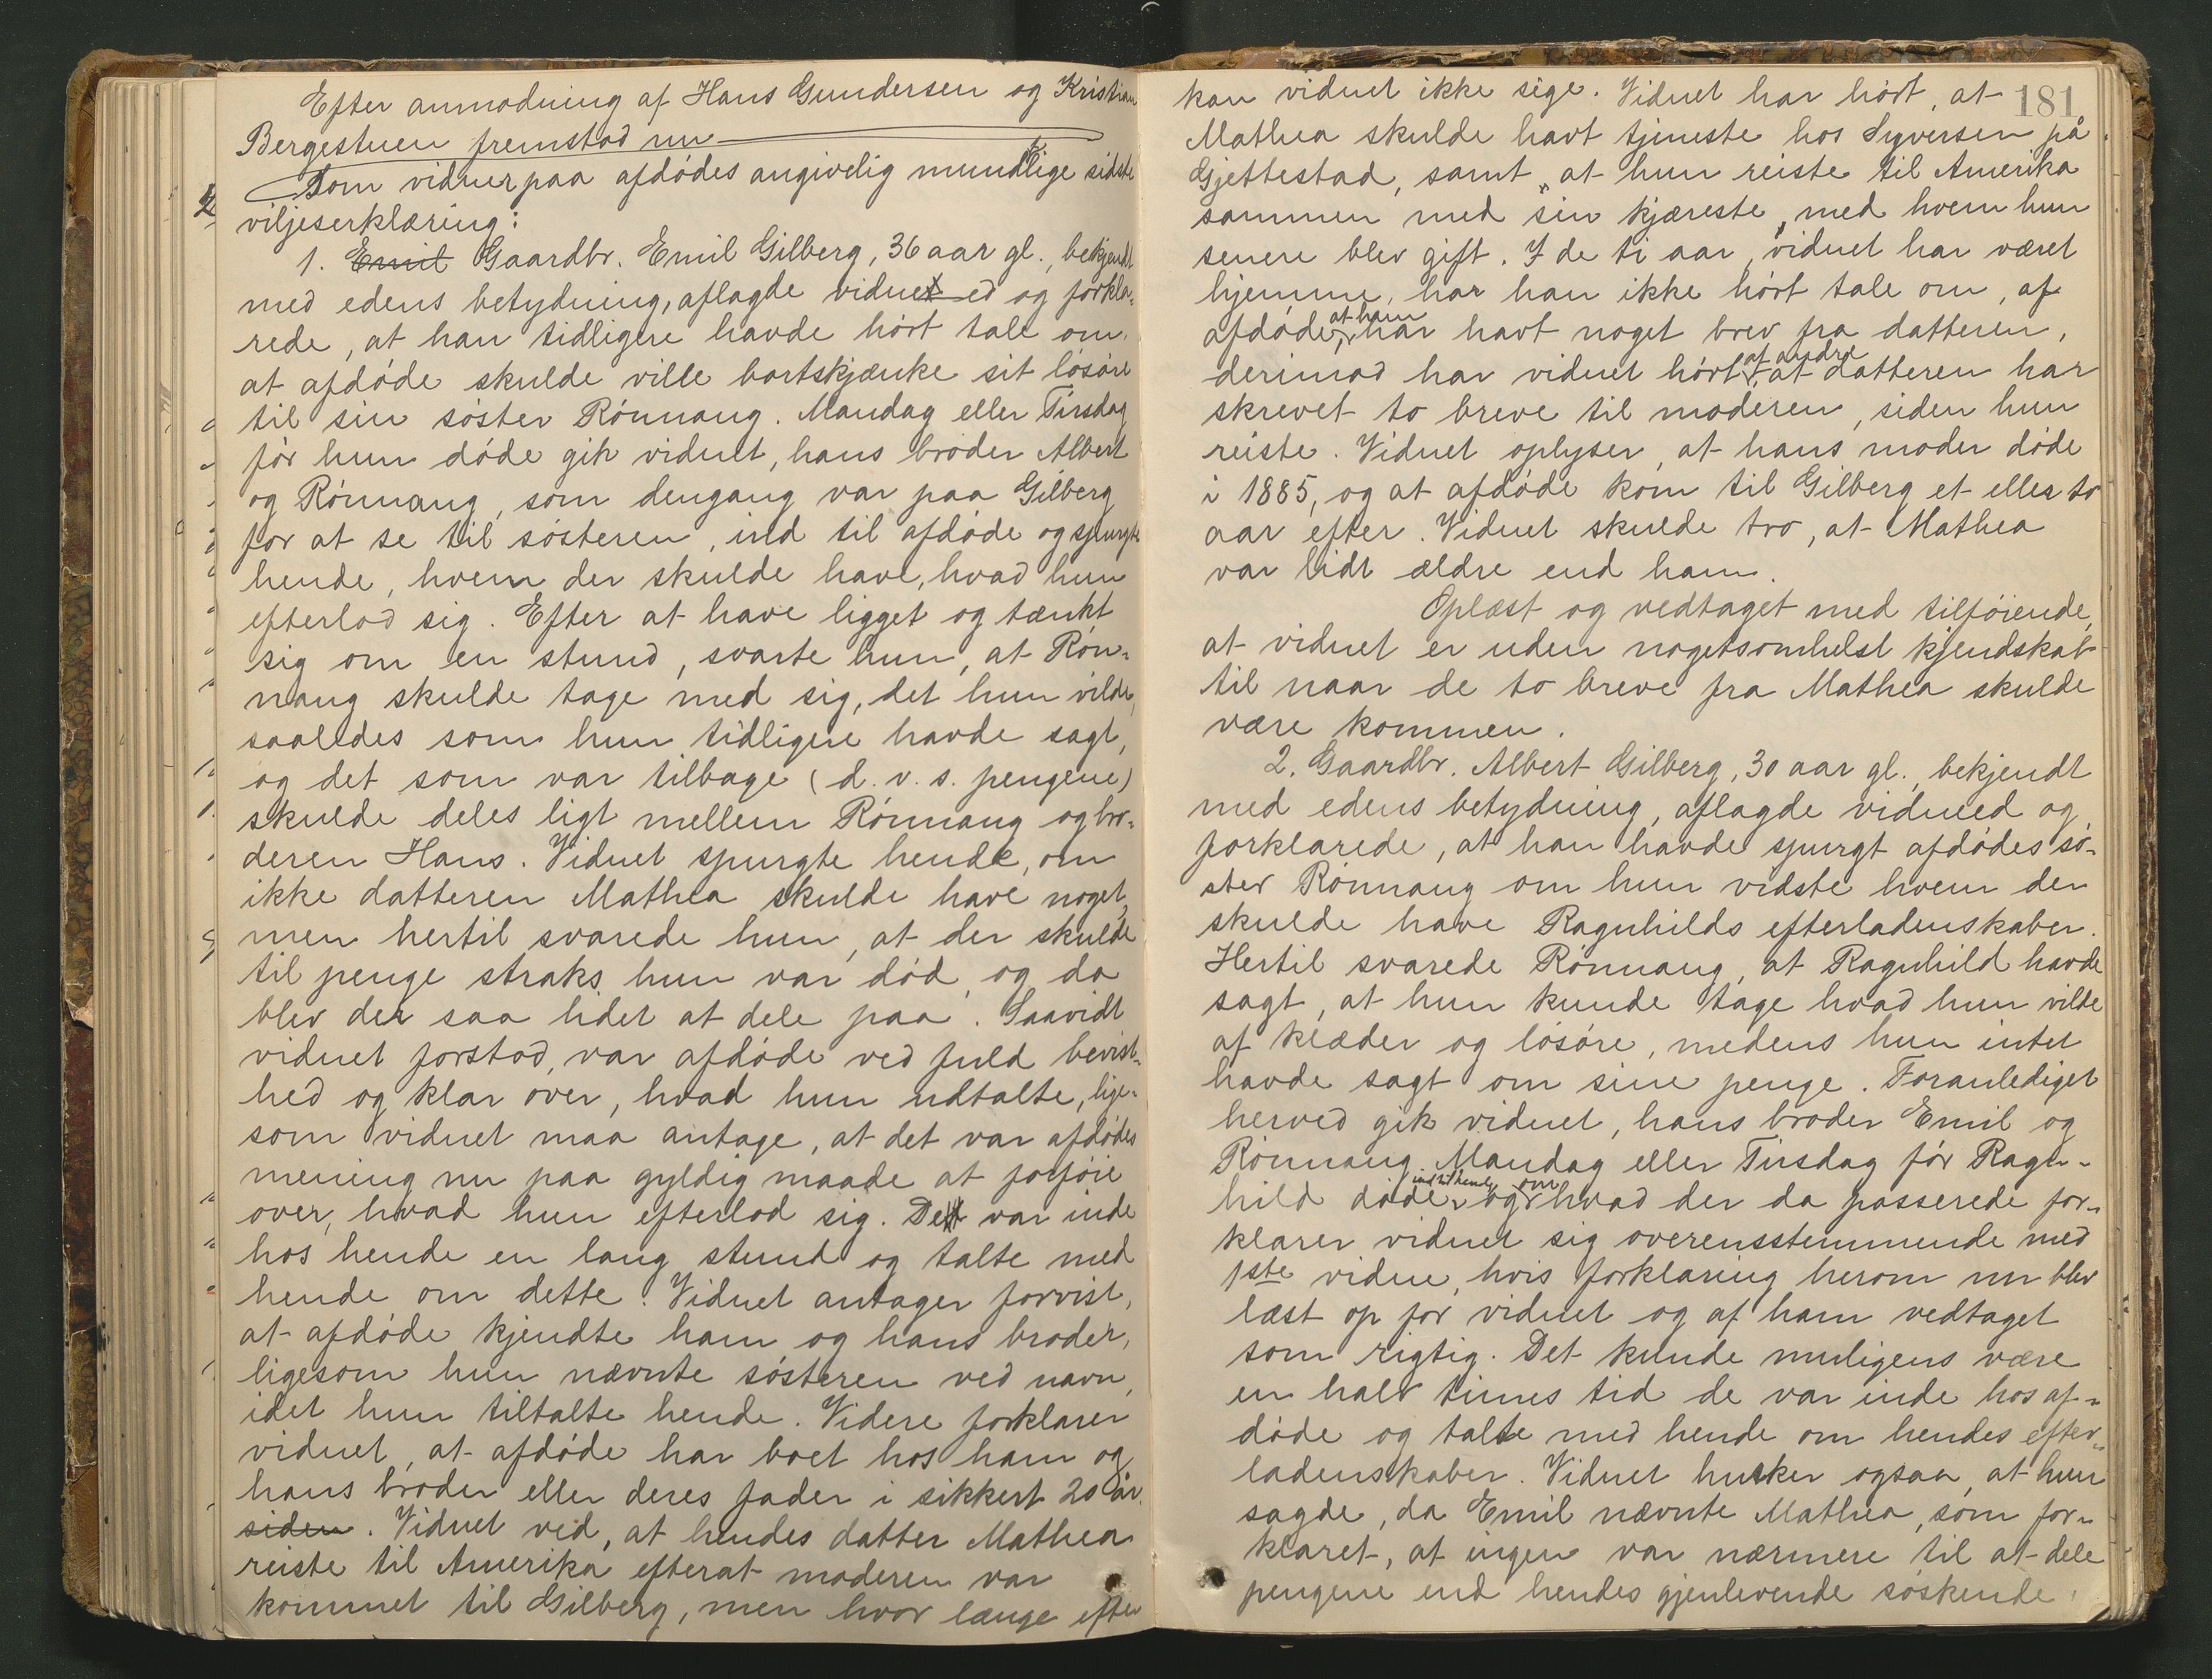 Efter anmodning af Hans Gundersen og Kristian
Bergestuen fremstod nu
Som vidner paa afdødes angivelig mundtlige sidste
viljeserklæring:
1. Emil Gaardbr. Emil Gilberg, 36 aar gl., bekjendt
med edens betydning, aflagde vidneed og forkla-
rede, at han tidligere havde hørt tale om
at afdøde skulde ville bortskjænke sit løsøre
til sin søster Rønnaug. Mandag eller Tirsdag
før hun døde gik vidnet, hans broder Albert
og Rønnaug, som dengang var paa Gilberg
for at se til søsteren, ind til afdøde og spurgte
hende, hvem der skulde have, hvad hun
efterlod sig. Efter at have ligget og tænkt
sig om en stund, svarte hun, at Røn-
naug skulde tage med sig, det hun vilde,
saaledes som hun tidligere havde sagt,
og det som var tilbage (d. v. s. pengene)
skulde deles ligt mellem Rønnaug og bro-
deren Hans. Vidnet spurgte hende, om
ikke datteren Mathea skulde have noget,
men hertil svarede hun, at der skulde
til penge straks hun var død, og da
blev der saa lidet at dele paa. Saavidt
vidnet forstod, var afdøde ved fuld bevist-
hed og klar over, hvad hun udtalte, lige-
som vidnet maa antage, at det var afdødes
mening nu paa gyldig maade at forføie
over, hvad hun efterlod sig. De var inde
hos hende en lang stund og talte med
hende om dette. Vidnet antager forvist,
at afdøde kjendte ham og hans broder,
ligesom hun nævnte søsteren ved navn,
idet hun tiltalte hende. Videre forklarer
vidnet, at afdøde har boet hos ham og
hans broder eller deres fader i sikkert 20 år
siden. Vidnet ved, at hendes datter Mathea
reiste til Amerika efterat moderen var
kommet til Gilberg, men hvor længe efter
181
kan vidnet ikke sige. Vidnet har hørt, at
Mathea skulde havt tjeneste hos Syversen på
Gjettestad, samt at hun reiste til Amerika
sammen med sin kjæreste, med hvem hun
senere blev gift. I de ti aar, vidnet har været
hjemme, har han ikke hørt tale om, af
afdøde, at hun har havt noget brev fra datteren,
derimod har vidnet hørt af andre, at datteren har
skrevet to breve til moderen, siden hun
reiste. Vidnet oplyser, at hans moder døde
i 1885, og at afdøde kom til Gilberg et eller to
aar efter. Vidnet skulde tro, at Mathea
var lidt ældre end ham.
Oplæst og vedtaget med tilføiende,
at vidnet er uden nogetsomhelst kjendskab
til naar de to breve fra Mathea skulde
være kommen.
2. Gaardbr. Albert Gilberg, 30 aar gl., bekjendt
med edens betydning, aflagde vidneed og
forklarede, at han havde spurgt afdødes sø-
ster Rønnaug om hun vidste hvem der
skulde have Ragnhilds efterladenskaber.
Hertil svarede Rønnaug, at Ragnhild havde
sagt, at hun kunde tage hvad hun vilde
af klæder og løsøre, medens hun intet
havde sagt om sine penge. Foranlediget
herved gik vidnet, hans broder Emil og
Rønnaug Mandag eller Tirsdag før Ragn-
hild døde ind til hende, og om hvad der da passerede for-
klarer vidnet sig overensstemmende med
1ste vidne, hvis forklaring herom nu blev
læst op for vidnet og af ham vedtaget
som rigtig. Det kunde muligens være
en halv times tid de var inde hos af-
døde og talte med hende om hendes efter-
ladenskaber. Vidnet husker ogsaa, at hun
sagde, da Emil nævnte Mathea, som for-
klaret, at ingen var nærmere til at dele
pengene end hendes gjenlevende søskende.